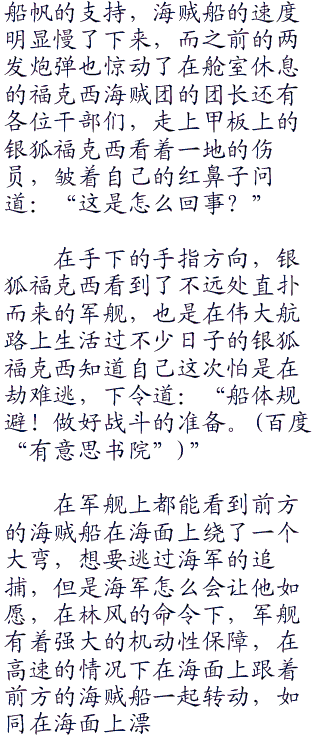 船帆的支持，海贼船的速度
明显慢了下来，而之前的两
发炮弹也惊动了在舱室休息
的福克西海贼团的团长还有
各位干部们，走上甲板上的
银狐福克西看着一地的伤
员，皱着自己的红鼻子问
道：“这是怎么回事？”
在手下的手指方向，银
狐福克西看到了不远处直扑
而来的军舰，也是在伟大航
路上生活过不少日子的银狐
福克西知道自己这次怕是在
劫难逃，下令道：“船体规
避！做好战斗的准备。(百度
“有意思书院”)”
在军舰上都能看到前方
的海贼船在海面上绕了一个
大弯，想要逃过海军的追
捕，但是海军怎么会让他如
愿，在林风的命令下，军舰
有着强大的机动性保障，在
高速的情况下在海面上跟着
前方的海贼船一起转动，如
同在海面上漂